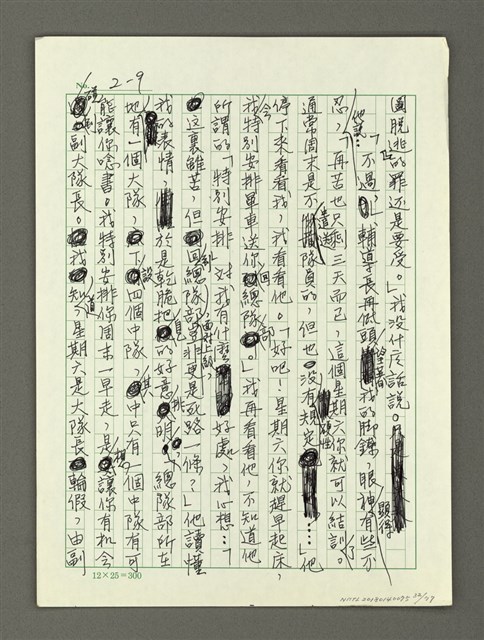 No. 2-9
圖脫逃的罪還是要受。」我没什庅話說。
「不過，」輔導長再低頭望着我的脚鐐，眼神有些不
忍，他說：「再苦也只熬三天而已，這個星期六你就可以結訓了。
通常周末是不遣送隊員的，但也没有硬性規定……」他
停下來看看我，我看看他。「好吧！星期六你就提早起床，
我特別安排單車送你回總隊部。」我再看看他，不知道他
所謂的「特別安排」對我有什麽好處，我心想：「
這裏雖苦，但回到總隊部，面對上級，豈非更是死路一條？」他讀懂
我的表情，於是乾脆把自己的好意挑明：「總隊部所在
地有一個大隊，下設四個中隊，其中只有一個中隊有可
能讓你唸書。我特別安排你周末一早走，是想讓你有機會
碰到副大隊長。我知道，星期六是大隊長輪假，由副
12×25=300